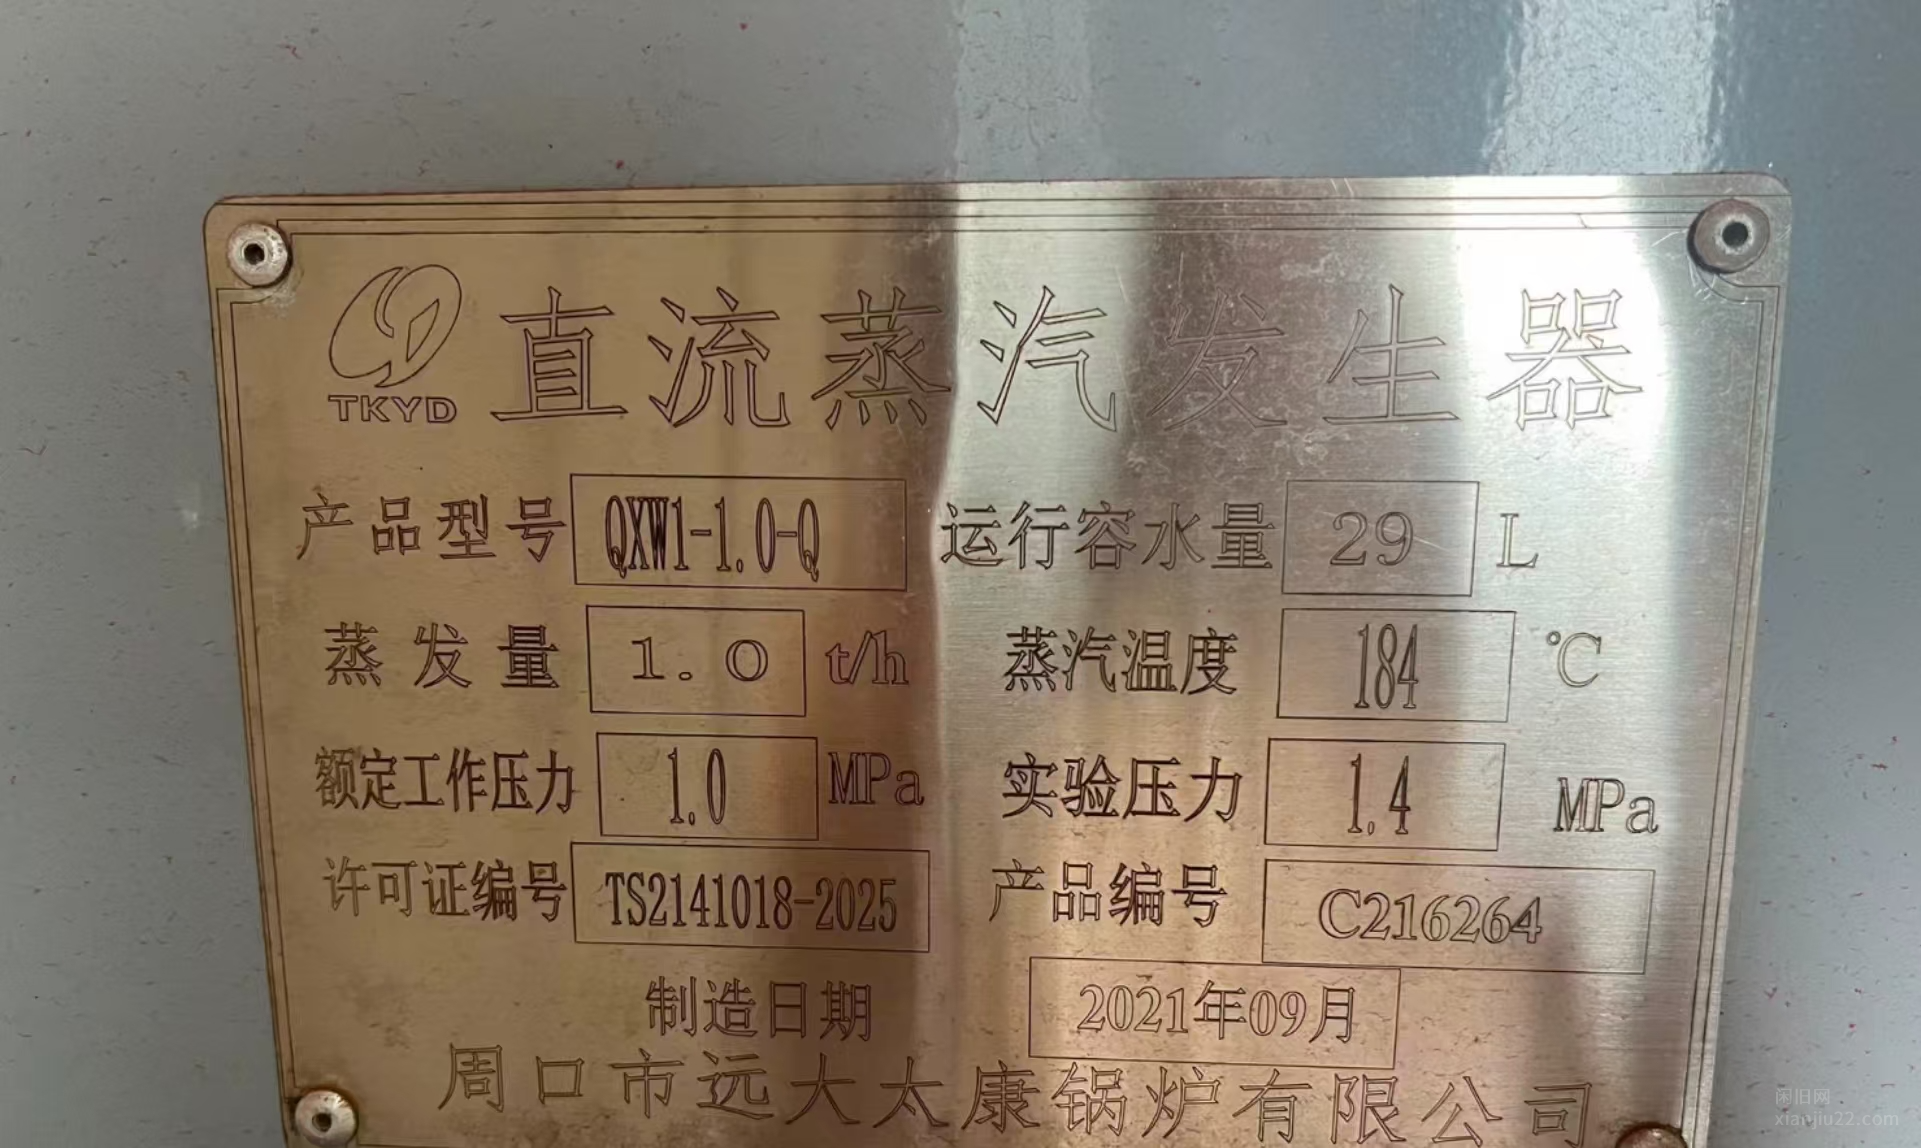 TKYD 直流蒸汽发生器
产品型号 QXW1-1.0-Q 运行容水量 29 L
蒸发量 1.0 t/h 蒸汽温度 184 ℃
额定工作压力 1.0 MPa 实验压力 1.4 MPa
许可证编号 TS2141018-2025 产品编号 C216264
制造日期 2021年09月
周口市远大太康锅炉有限公司
闲旧网
xianjiu22.com